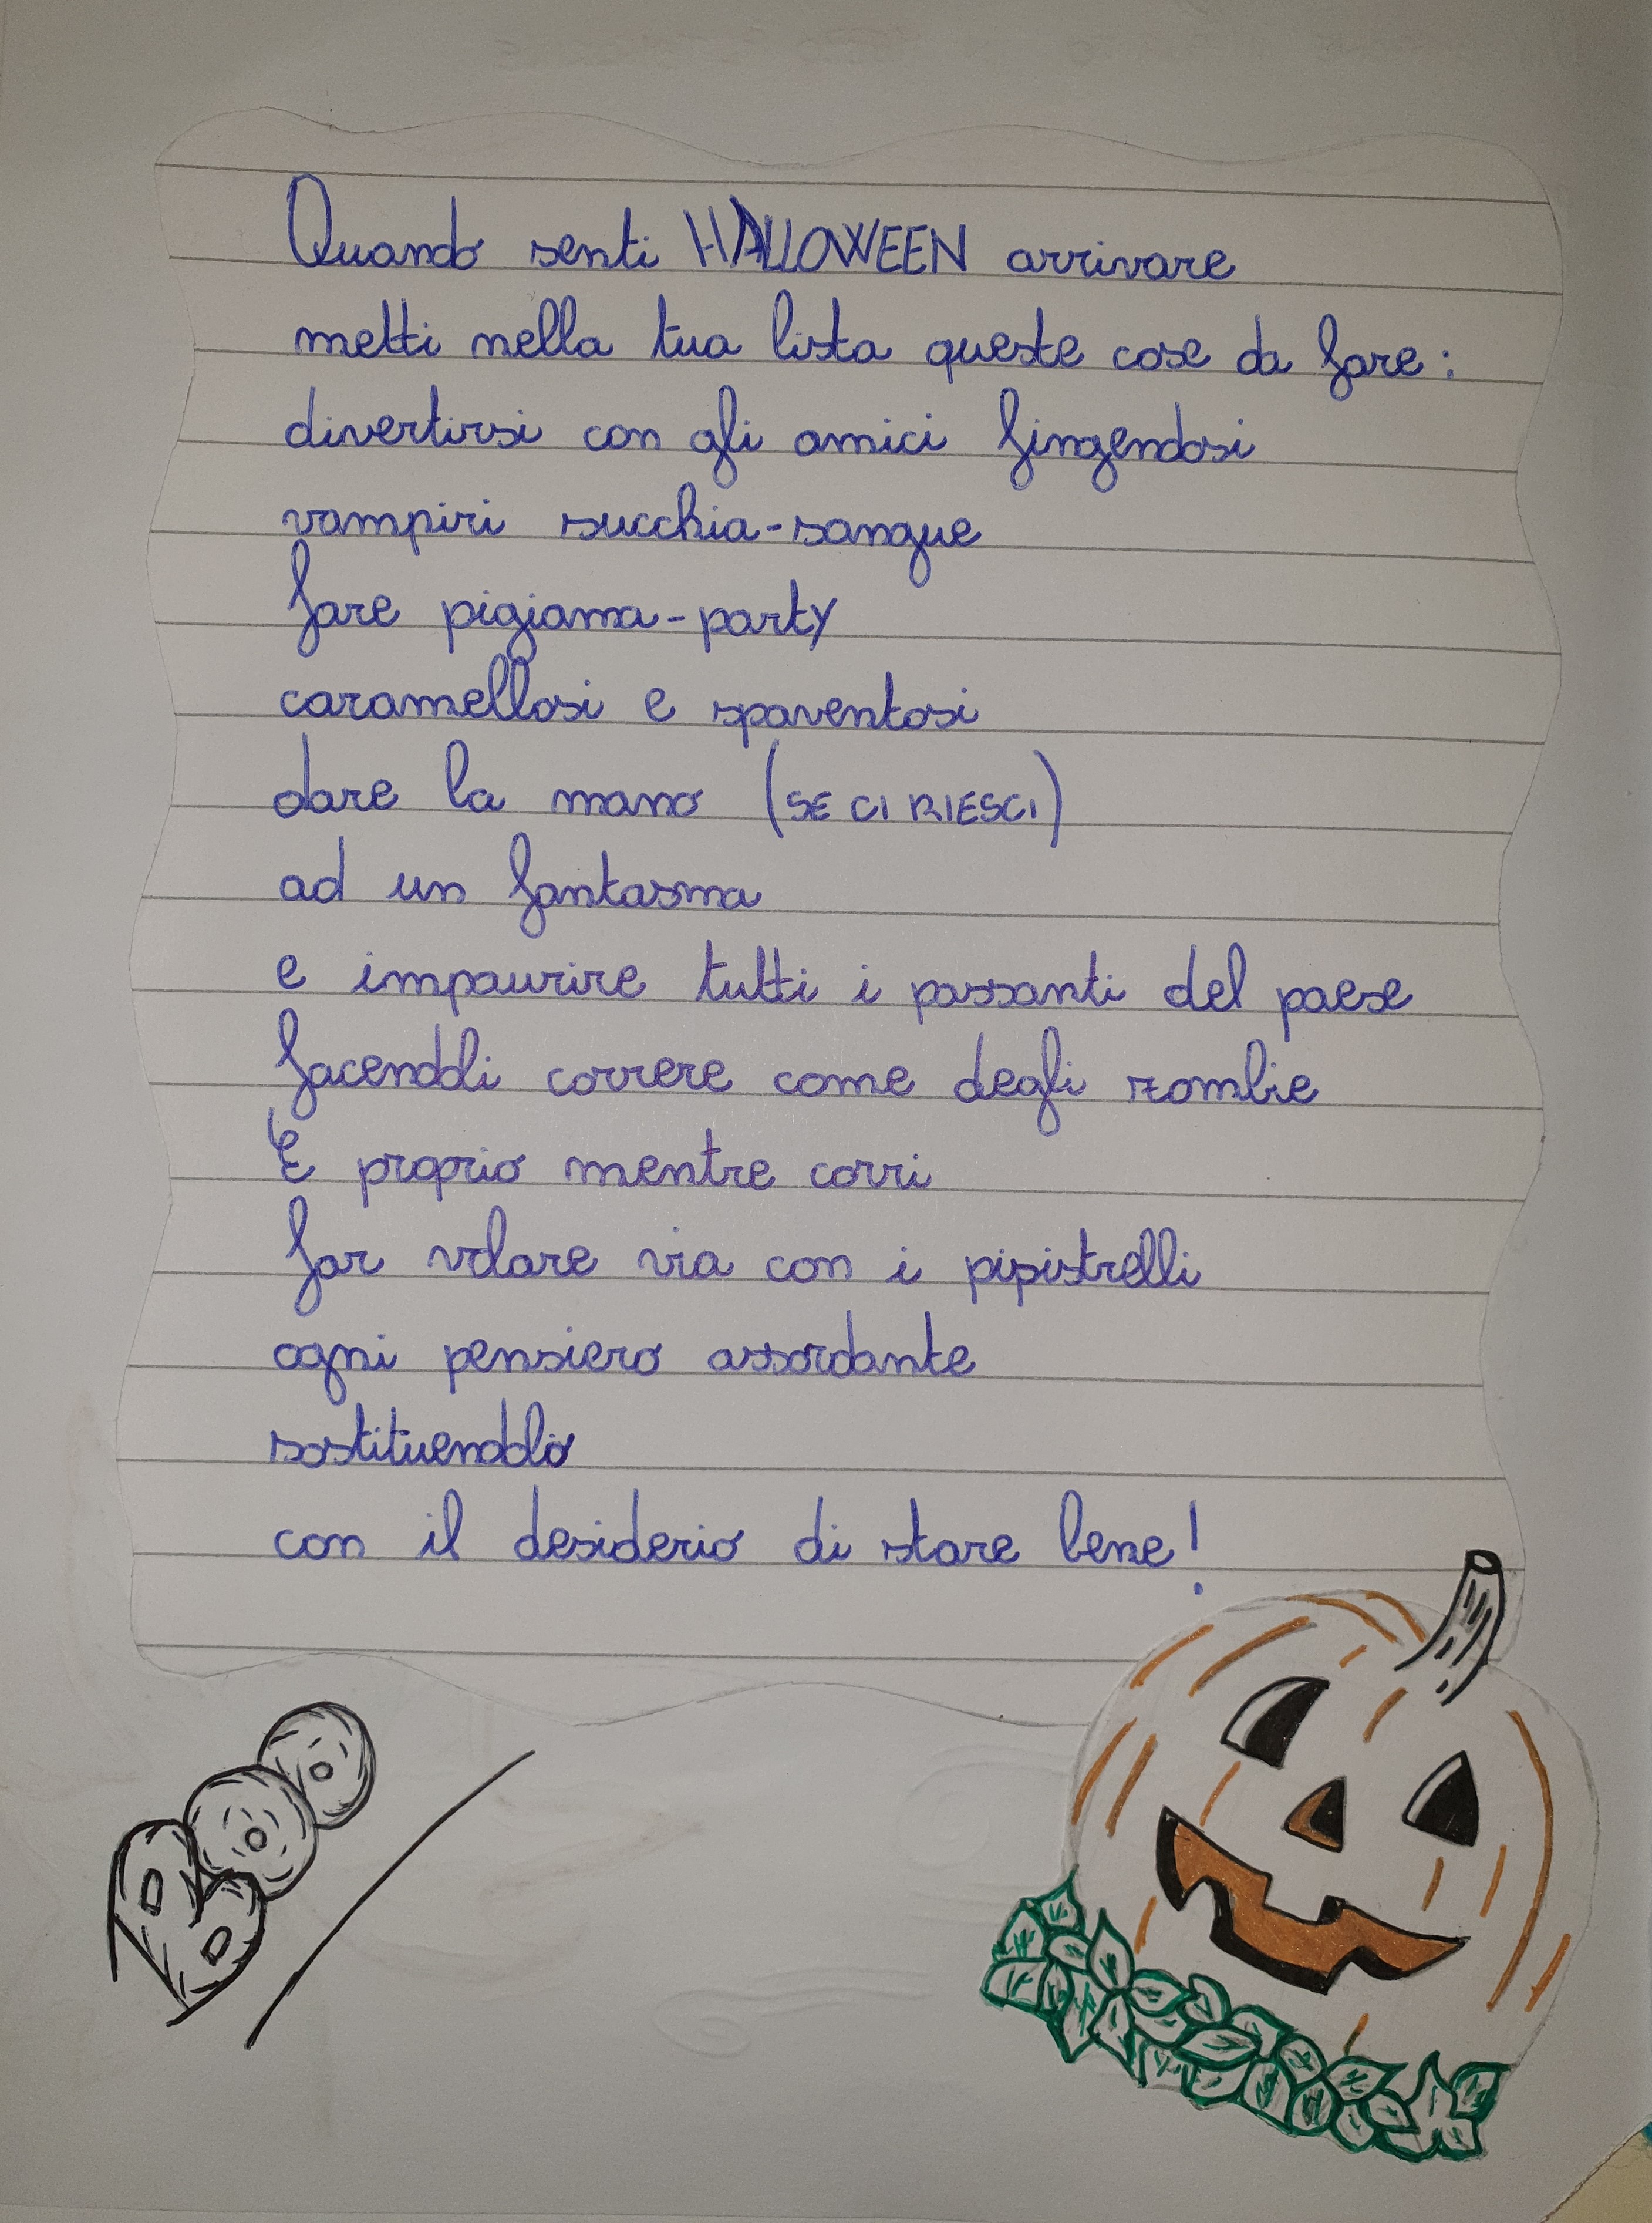 Quando senti HALLOWEEN arrivare
metti nella tua lista queste cose da fare:
divertirsi con gli amici fingendosi
vampiri succhia-sangue
fare pigiama-party
caramellosi e spaventosi
dare la mano (SE CI RIESCI)
ad un fantasma
e impaurire tutti i passanti del paese
facendoli correre come degli zombie
E proprio mentre corri
far volare via con i pipistrelli
ogni pensiero assordante
sostituendolo
con il desiderio di stare bene!
BOO